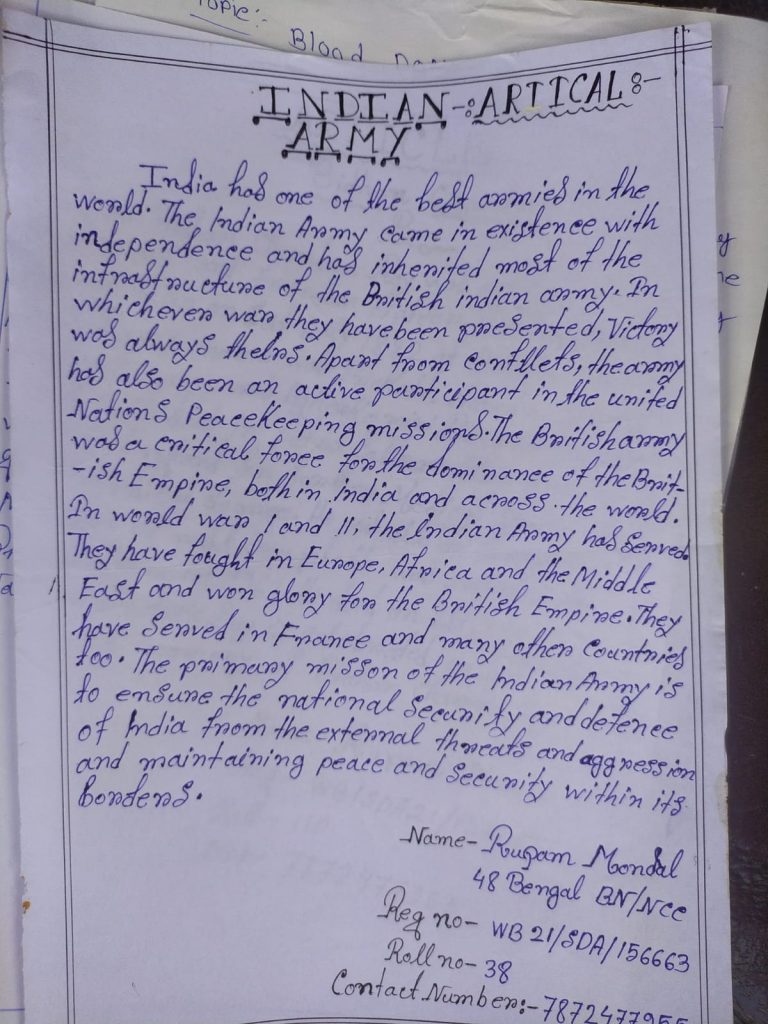 Topic:-
Blood
INDIAN -: ARTICAL :-
ARMY
India has one of the best armies in the
world. The Indian Army came in existence with
independence and has inherited most of the
infrastructure of the British indian army. In
whichever war they have been presented, Victory
was always theirs. Apart from conflicts, the army
has also been an active participant in the united
Nations Peacekeeping missions. The British army
was a critical force for the dominance of the Brit-
-ish Empire, both in india and across the world.
In world war I and II, the Indian Army has served.
They have fought in Europe, Africa and the Middle
East and won glory for the British Empire. They
have served in France and many other countries
too. The primary misson of the Indian Army is
to ensure the national security and defence
of India from the external threats and aggression
and maintaining peace and security within its
borders.
Name- Rupam Mondal
48 Bengal BN/NCC
Reg no- WB 21/SDA/156663
Roll no- 38
Contact Number:- 7872477955